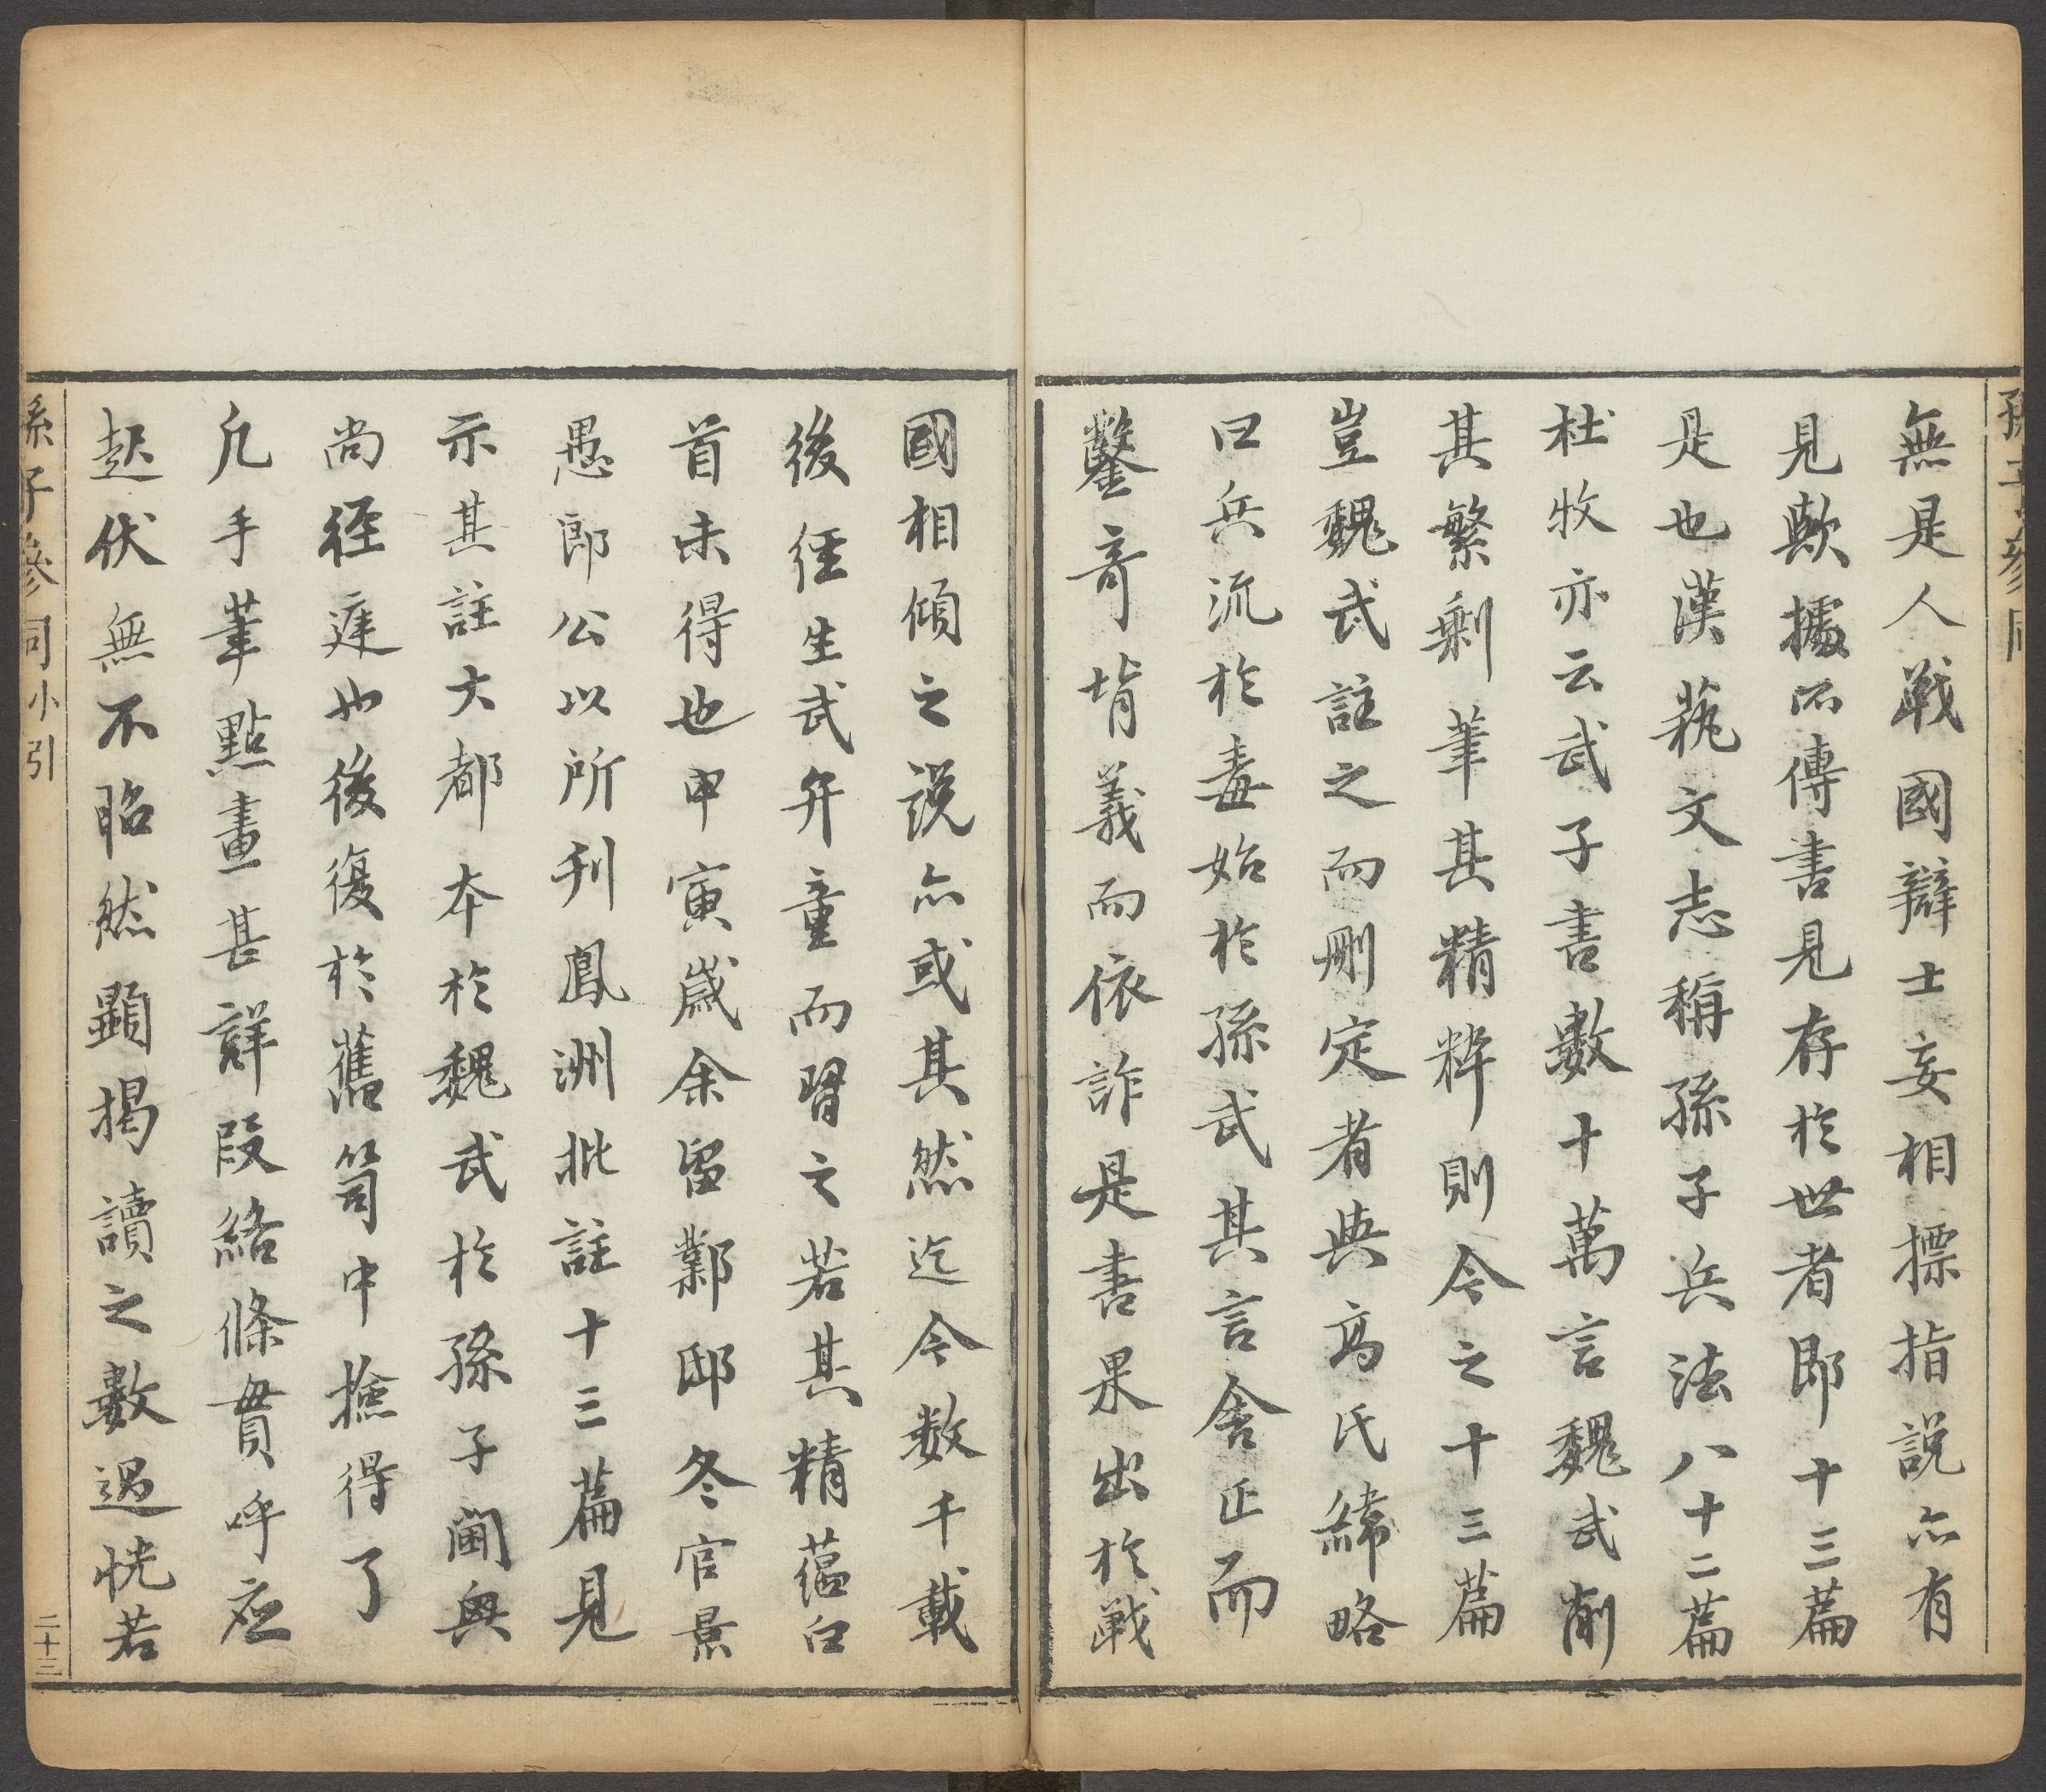 孫子參同
無是人戰國辯士妄相摽指說亦有
見歟據所傳書見存於世者即十三篇
是也漢藝文志稱孫子兵法八十二篇
杜牧亦云武子書數十萬言魏武削
其繁剩筆其精粹則今之十三篇
豈魏武註之而刪定者與高氏緯略
曰兵流於毒始於孫武其言舍正而
鑿奇背義而依詐是書果出於戰
國相傾之說亦或其然迄今数千載
後經生武弁童而習之若其精蘊白
首未得也甲寅歲余留鄴邸冬官景
愚郎公以所刊鳳洲批註十三篇見
示其註大都本於魏武於孫子閫奥
尚徑庭也後復於舊笥中撿得了
凡手筆點畫甚詳段絡條貫呼應
起伏無不昭然顯揭讀之數過恍若
孫子參同小引
二十三